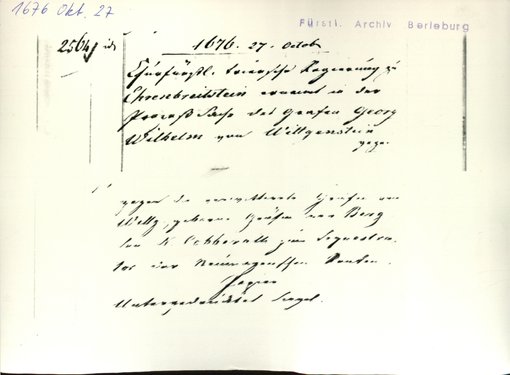 1676 Okt. 27
Fürstl. Archiv Berleburg
2564
1676. 27. Octob
Churfürstl. triersche Regierung zu
Ehrenbreitstein ernennt in der
Prozeß Sache des Grafen Georg
Wilhelm von Wittgenstein
gege.
gegen die verwittwete Gräfin von
Wittg. geborne Gräfin von Berg
den zum Sequestra
tor der Neumagenschen Renten.
Papier
Untergedrücktes Siegel.